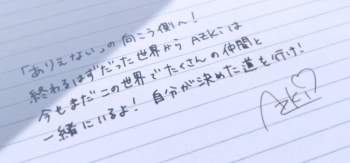 「ありえない」の向こう側へ!
終わるはずだった世界から AZKiは
今もまだこの世界でたくさんの仲間と
一緒にいるよ! 自分が決めた道を行け!
AZKi♡